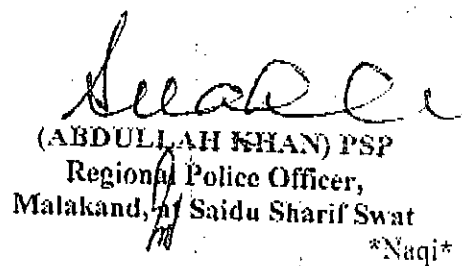 (ABDULLAH KHAN) PSP
Regional Police Officer,
Malakand, at Saidu Sharif Swat
*Naqi*